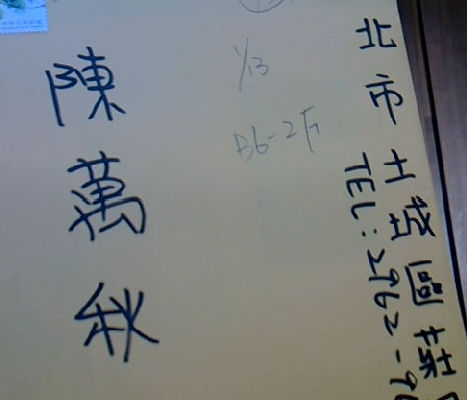 北市土城區莊
TEL:2962-9
陳萬秋
1/13
B6-2F